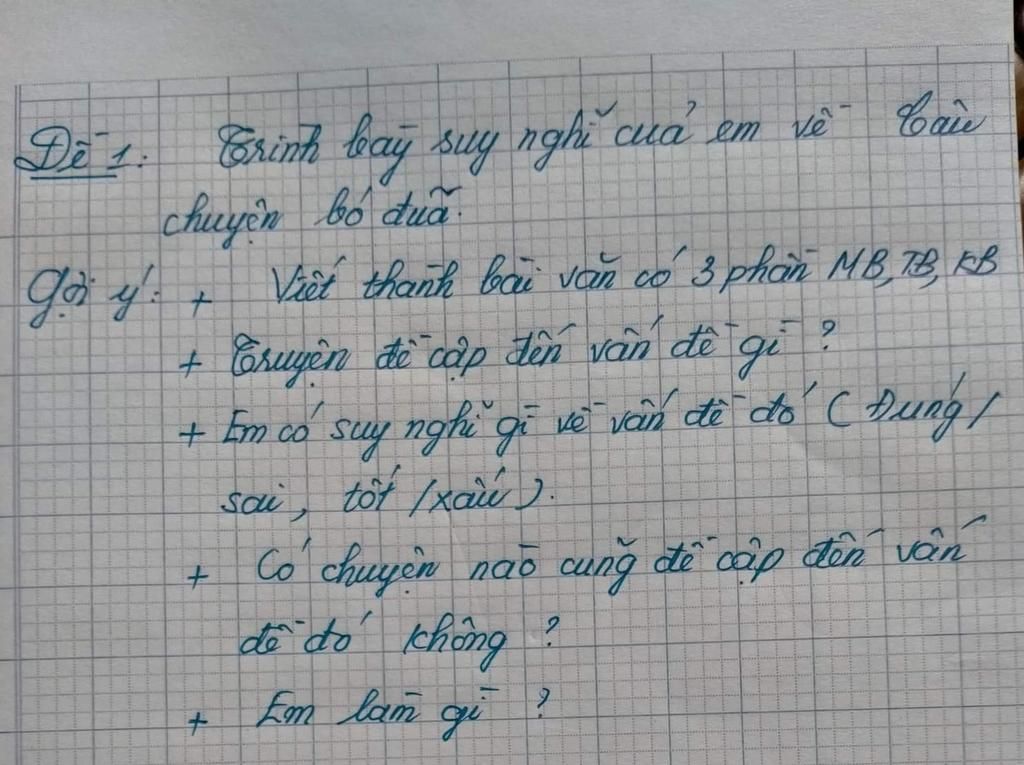 Đề 1: Trình bày suy nghĩ của em về câu
chuyện bó đũa.
Gợi ý: + Viết thành bài văn có 3 phần MB, TB, KB
+ Truyện đề cập đến vấn đề gì ?
+ Em có suy nghĩ gì về vấn đề đó ( Đúng /
sai, tốt / xấu ).
+ Có chuyện nào cũng đề cập đến vấn
đề đó không ?
+ Em làm gì ?